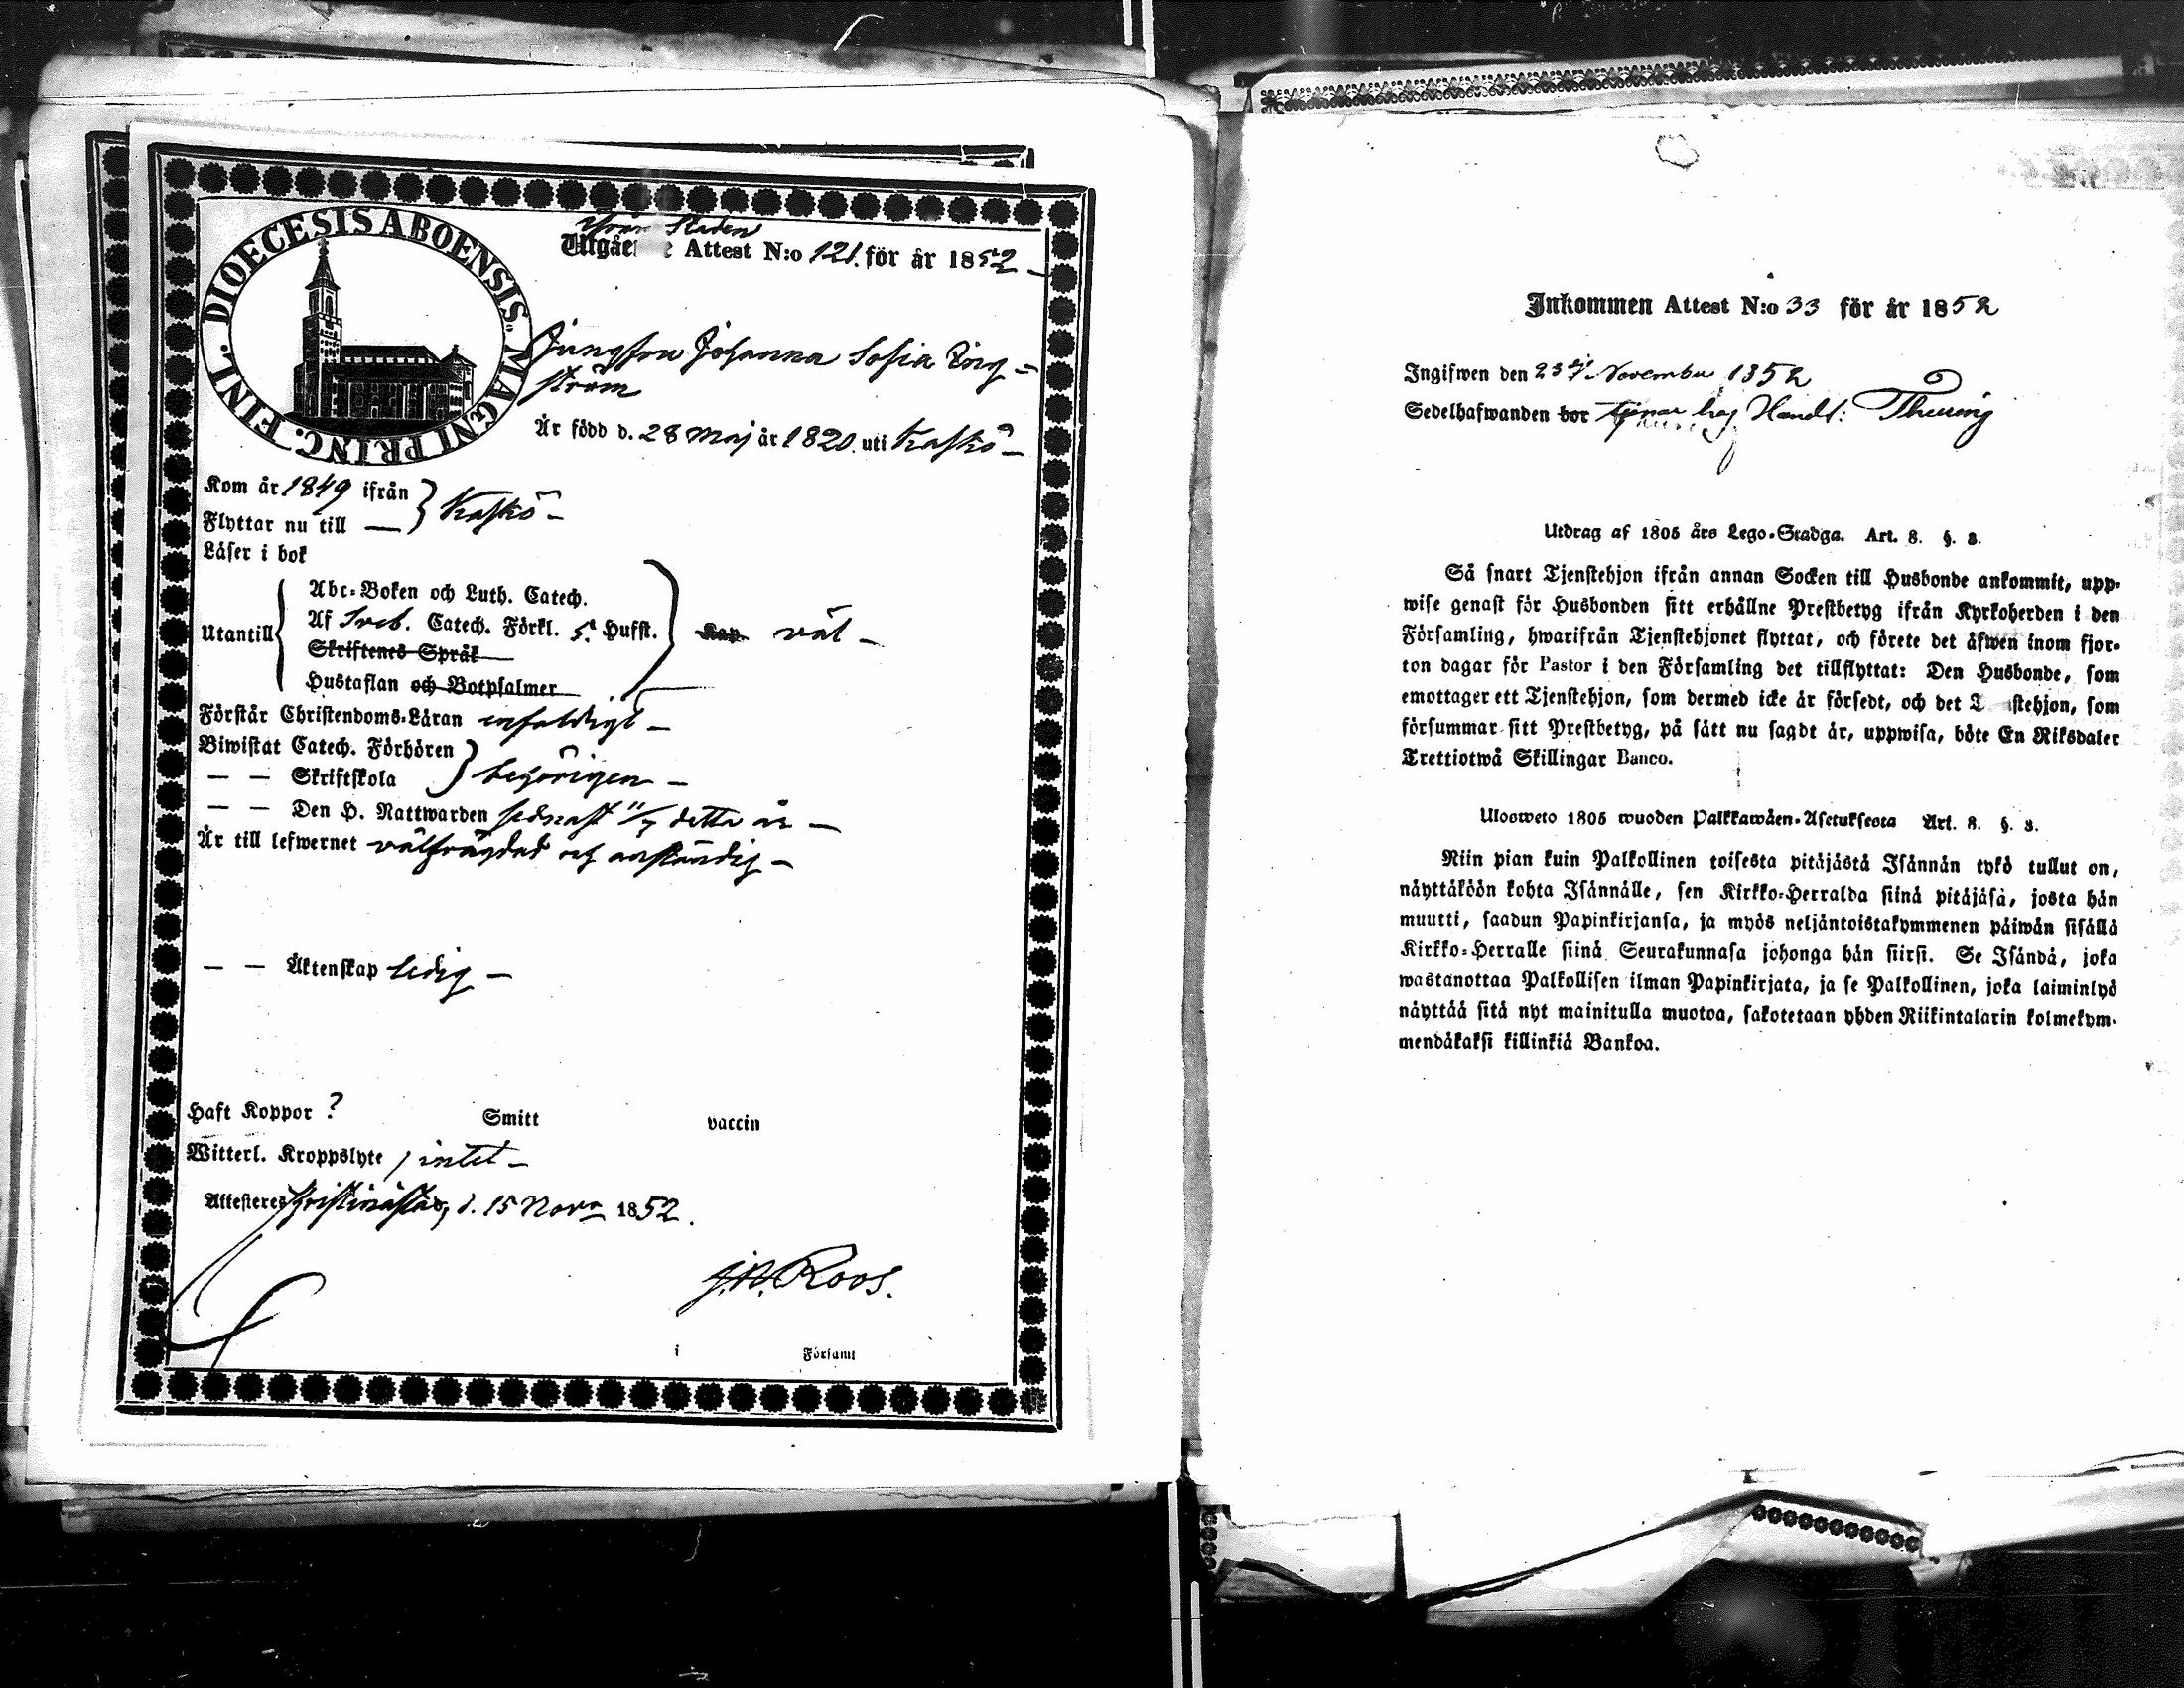 DIOECESIS ABOENSIS MAGNI PRINC. FINL.
från Staden
Utgåe e Attest N:o 121. för år 1852
Jungfru Johanna Sofia Eng-
ström
Är född d. 28 Maj år 1820. uti Kaskö
Kom år 1849 ifrån
Flyttar nu till — } Kaskö
Läser i bok
Abc-Boken och Luth. Catech.
Utantill Af Sveb. Catech. Förkl. 5. Hufst. Kap. väl
Skriftenes Språk
Hustaflan och Botpsalmer
Förstår Christendoms-Läran enfaldigt
Biwistat Catech. Förhören
— — Skriftskola } behörigen
— — Den H. Nattwarden sednast 11/7 detta år
Är till lefwernet välfrägdad och anständig
— — Äktenskap ledig
Haft Koppor ? Smitt vaccin
Witterl. Kroppslyte intet
Attesteres Kristinestad, d. 15 Nov. 1852.
Roos.
i Församl
Inkommen Attest N:o 33 för år 1852
Ingifwen den 23 November 1852
Sedelhafwanden bor tjenar hos Handl: Thuring
Utdrag af 1805 års Lego-Stadga. Art. 8. §. 3.
Så snart Tjenstehjon ifrån annan Socken till Husbonde ankommit, upp-
wise genast för Husbonden sitt erhållne Prestbetyg ifrån Kyrkoherden i den
Församling, hwarifrån Tjenstehjonet flyttat, och förete det äfwen inom fjor-
ton dagar för Pastor i den Församling det tillflyttat: Den Husbonde, som
emottager ett Tjenstehjon, som dermed icke är försedt, och det T stehjon, som
försummar sitt Prestbetyg, på sätt nu sagdt är, uppwisa, böte En Riksdaler
Trettiotwå Skillingar Banco.
Ulosweto 1805 wuoden Palkkawäen-Asetuksesta Art. 8. §. 3.
Niin pian kuin Palkollinen toisesta pitäjästä Isännän tykö tullut on,
näyttäköön kohta Isännälle, sen Kirkko-Herralda siinä pitäjäsä, josta hän
muutti, saadun Papinkirjansa, ja myös neljäntoistakymmenen päiwän sisällä
Kirkko-Herralle siinä Seurakunnasa johonga hän siirsi. Se Isändä, joka
wastanottaa Palkollisen ilman Papinkirjata, ja se Palkollinen, joka laiminlyö
näyttää sitä nyt mainitulla muotoa, sakotetaan yhden Riikintalarin kolmekym-
mendäkaksi killinkiä Bankoa.